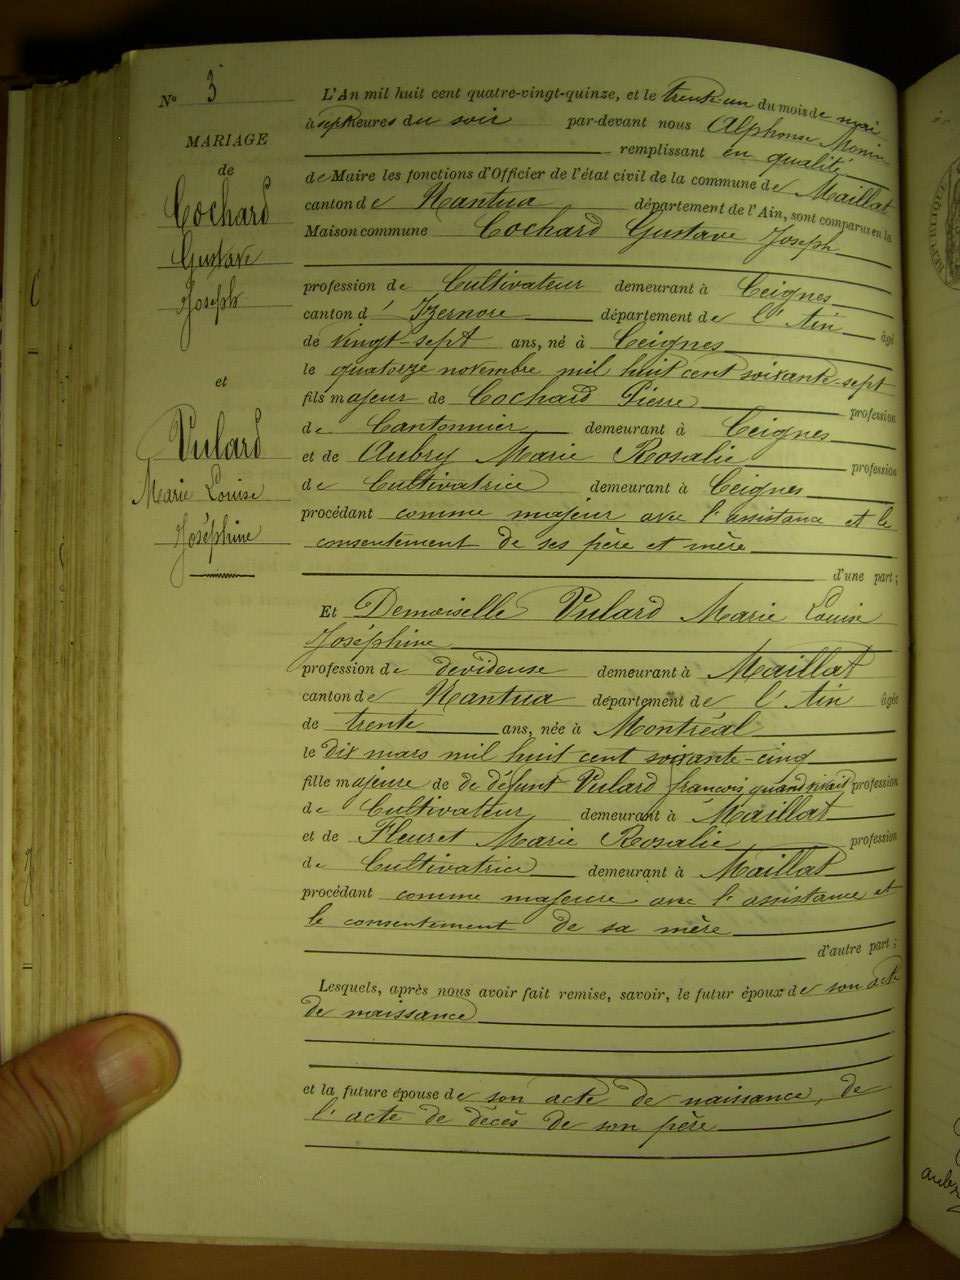 N° 3
MARIAGE
de
Cochard
Gustave
Joseph
et
Vulard
Marie Louise
Joséphine
L'An mil huit cent quatre-vingt-quinze, et le trente-un du mois de mai
à sept heures du soir par-devant nous Alphonse Monin
remplissant en qualité
de Maire les fonctions d'Officier de l'état civil de la commune de Maillat
canton de Nantua département de l'Ain, sont comparus en la
Maison commune Cochard Gustave Joseph
profession de Cultivateur demeurant à Ceignes
canton d' Izernore département de l'Ain âgé
de vingt-sept ans, né à Ceignes
le quatorze novembre mil huit cent soixante-sept
fils majeur de Cochard Pierre profession
de Cantonnier demeurant à Ceignes
et de Aubry Marie Rosalie profession
de Cultivatrice demeurant à Ceignes
procédant comme majeur avec l'assistance et le
consentement de ses père et mère
d'une part;
Et Demoiselle Vulard Marie Louise
Joséphine
profession de devideuse demeurant à Maillat
canton de Nantua département de l'Ain âgée
de trente ans, née à Montréal
le dix mars mil huit cent soixante-cinq
fille majeure de de défunt Vulard françois quand vivait profession
de Cultivateur demeurant à Maillat
et de Fleuret Marie Rosalie profession
de Cultivatrice demeurant à Maillat
procédant comme majeure avec l'assistance et
le consentement de sa mère
d'autre part;
Lesquels, après nous avoir fait remise, savoir, le futur époux de son acte
de naissance
et la future épouse de son acte de naissance, de
l'acte de décès de son père